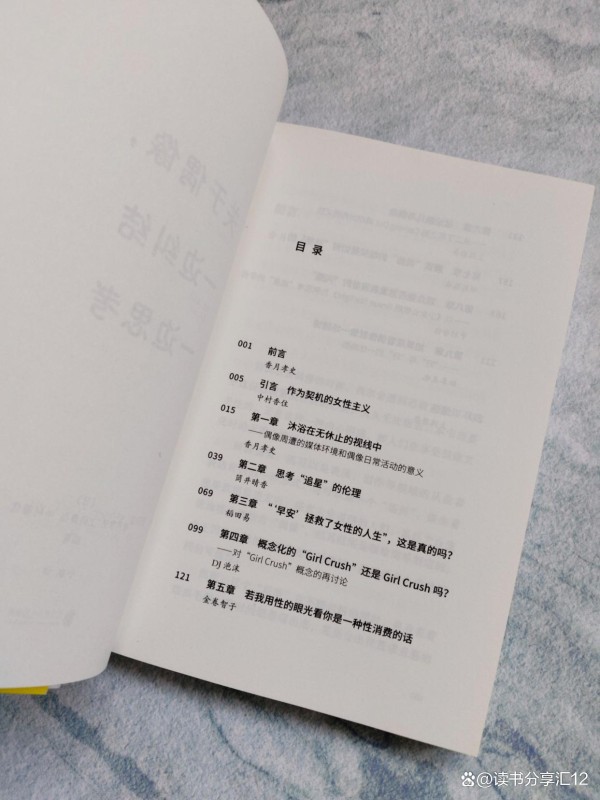 关于偶像，
一边纠结
一边思考
目 录
001 前言
香月孝史
005 引言 作为契机的女性主义
中村香住
015 第一章 沐浴在无休止的视线中
——偶像周遭的媒体环境和偶像日常活动的意义
香月孝史
039 第二章 思考“追星”的伦理
筒井晴香
069 第三章 “‘早安’拯救了女性的人生”，这是真的吗？
稻田易
099 第四章 概念化的“Girl Crush”还是 Girl Crush 吗？
——对“Girl Crush”概念的再讨论
DJ 泡沫
121 第五章 若我用性的眼光看你是一种性消费的话
金春智子
@读书分享汇12